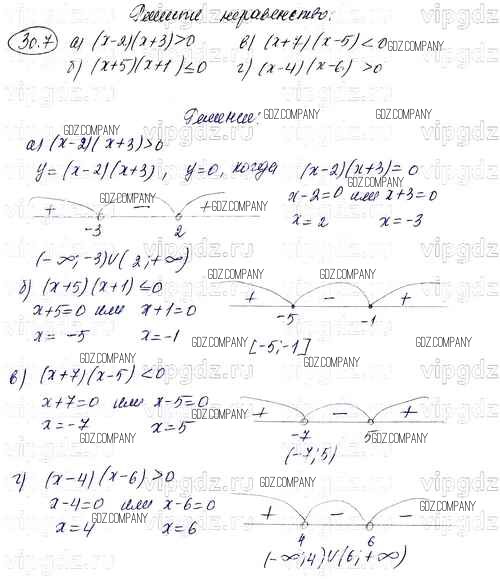 Решите неравенство:
30.7 а) (x-2)(x+3)>0 в) (x+7)(x-5)<0
б) (x+5)(x+1)≤0 г) (x-4)(x-6)>0
Решение:
а) (x-2)(x+3)>0
y=(x-2)(x+3), y=0, когда (x-2)(x+3)=0
x-2=0 или x+3=0
x=2 x=-3
+ − +
-3 2
(-∞;-3)∪(2;+∞)
б) (x+5)(x+1)≤0
x+5=0 или x+1=0
x=-5 x=-1
+ − +
-5 -1
[-5;-1]
в) (x+7)(x-5)<0
x+7=0 или x-5=0
x=-7 x=5
+ − +
-7 5
(-7;5)
г) (x-4)(x-6)>0
x-4=0 или x-6=0
x=4 x=6
+ − −
4 6
(-∞;4)∪(6;+∞)
GDZ.COMPANY
vipgdz.ru